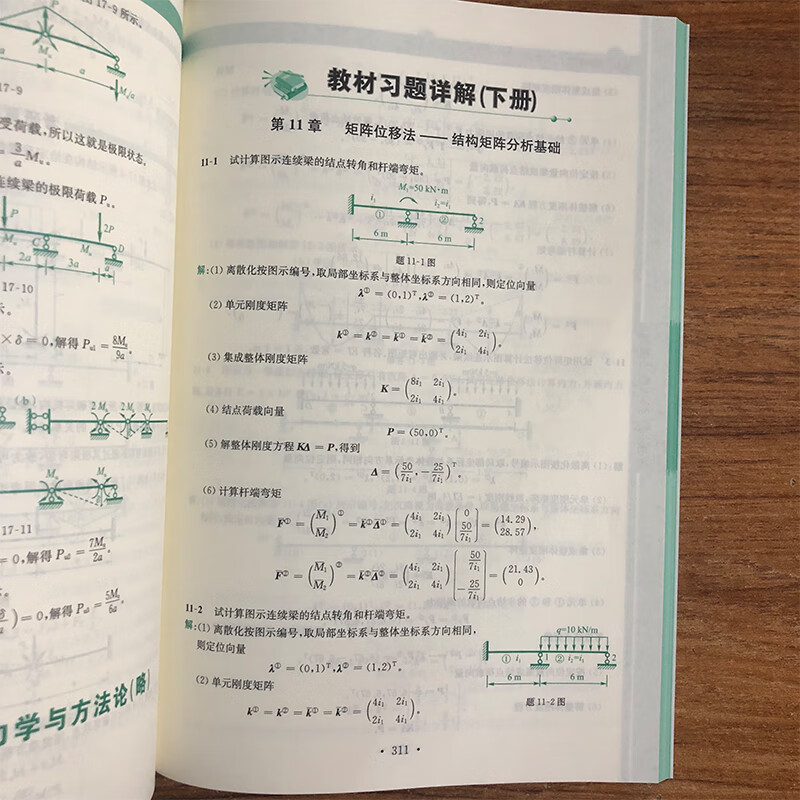 图17-9所示。
P
Mu
a
a
Mu/a
17-9
受荷载,所以这就是极限状态,
= 3/a Mu。
连续梁的极限荷载 Pu。
P
2P
Mu
C
Mu
D
2a
3a
a
17-10
示。
×δ=0,解得 Pu1=8Mu/9a。
示。
(b)
2Mu 2Mu Mu
Mu Mu
17-11
=0,解得 Pu2=7Mu/2a。
)=0,解得 Pu3=5Mu/6a。
力学与方法论(略)
教材习题详解(下册)
第 11 章 矩阵位移法——结构矩阵分析基础
11-1 试计算图示连续梁的结点转角和杆端弯矩。
M1=50 kN·m
i1 i2=i1
① 1 ② 2
6 m 6 m
题 11-1 图
解:(1) 离散化按图示编号,取局部坐标系与整体坐标系方向相同,则定位向量
λ① = (0,1)ᵀ, λ② = (1,2)ᵀ。
(2) 单元刚度矩阵
k① = k② = k̄① = k̄② = (4i1 2i1
2i1 4i1)。
(3) 集成整体刚度矩阵
K = (8i1 2i1
2i1 4i1)。
(4) 结点荷载向量
P = (50,0)ᵀ。
(5) 解整体刚度方程 KΔ = P,得到
Δ = (50/7i1, -25/7i1)ᵀ。
(6) 计算杆端弯矩
F̄① = (M̄1
M̄2)① = k̄①Δ̄① = (4i1 2i1
2i1 4i1)(0
50/7i1) = (14.29
28.57)。
F̄② = (M̄1
M̄2)② = k̄②Δ̄② = (4i1 2i1
2i1 4i1)(50/7i1
-25/7i1) = (21.43
0)。
11-2 试计算图示连续梁的结点转角和杆端弯矩。
解:(1) 离散化按图示编号,取局部坐标系与整体坐标系方向相同,
则定位向量
λ① = (0,1)ᵀ, λ② = (1,2)ᵀ。
(2) 单元刚度矩阵
k① = k② = k̄① = k̄② = (4i1 2i1
2i1 4i1)。
q=10 kN/m
① i1 1 ② i2=i1 2
6 m 6 m
题 11-2 图
· 311 ·